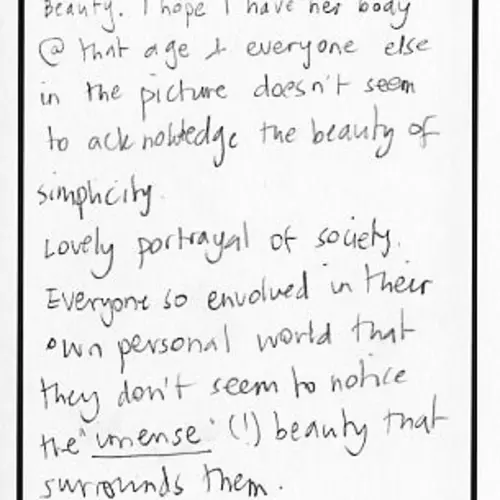 Beauty. I hope I have her body
@ that age & everyone else
in the picture doesn't seem
to acknowledge the beauty of
simplicity.
Lovely portrayal of society.
Everyone so envolved in their
own personal world that
they don't seem to notice
the "imense" (!) beauty that
surrounds them.